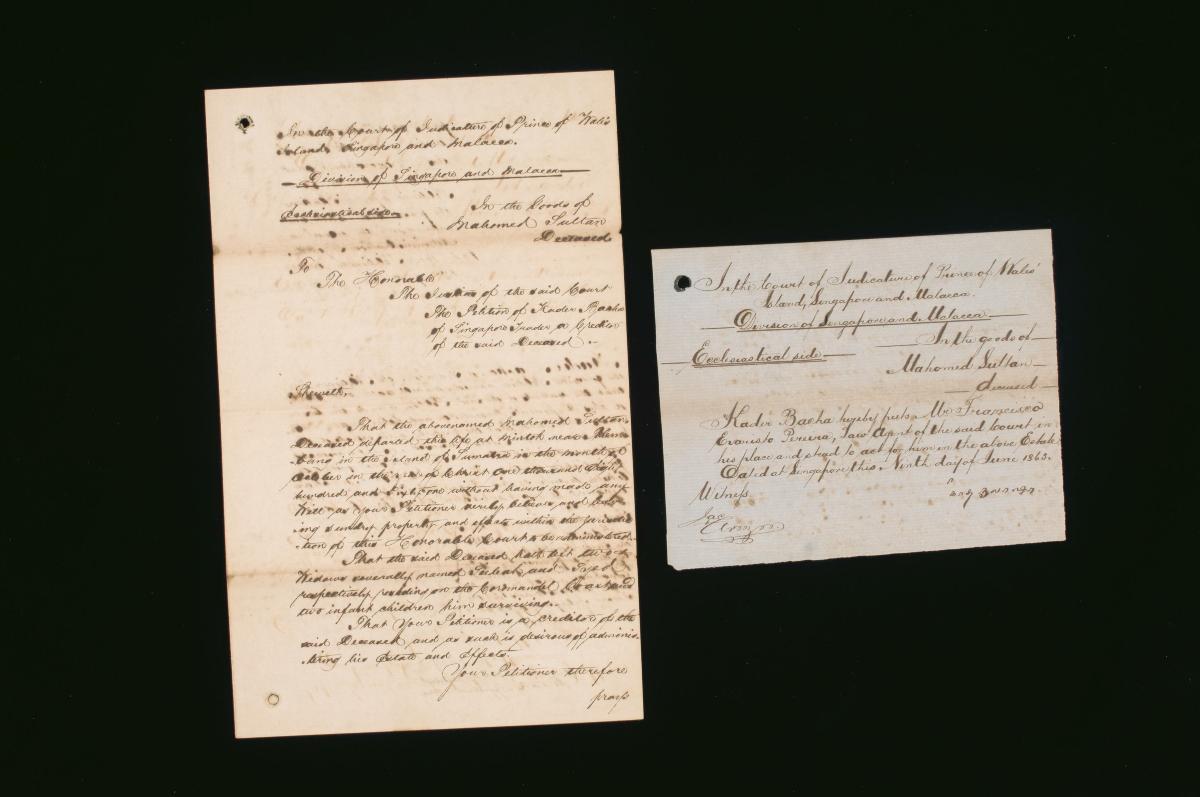 In the Court of Judicature of Prince of Wales
Island Singapore and Malacca.
Division of Singapore and Malacca
Ecclesiastical side
In the Goods of
Mahomed Sultan
Deceased
To
The Honorable
The Justices of the said Court
The Petition of Kader Bacha
of Singapore Trader a Creditor
of the said Deceased.
Sheweth,
That the abovenamed Mahomed Sultan
Deceased departed this life at Mintok near
bang in the Island of Sumatra in the month of
October in the year of Christ One thousand Eight
hundred and Sixty one without having made any
Will as your Petitioner verily believes and leav
ing sundry property and effects within the jurisdic
tion of this Honorable Court to be administered.
That the said Deceased hath left two
Widows severally named and
respectively residing on the Coromandel Coast and
two infant children him surviving.
That Your Petitioner is a creditor of the
said Deceased and as such is desirous of adminis
tering his Estate and Effects.
Your Petitioner therefore
prays
In the Court of Judicature of Prince of Wales'
Island, Singapore and Malacca.
Division of Singapore and Malacca.
In the goods of
Ecclesiastical side
Mahomed Sultan
deceased
Kader Bacha hereby puts Mr Francisco
Evaristo Pereira, Law Agent of the said Court in
his place and stead to act for him in the above Estate.
Dated at Singapore this Ninth day of June 1863.
Witness